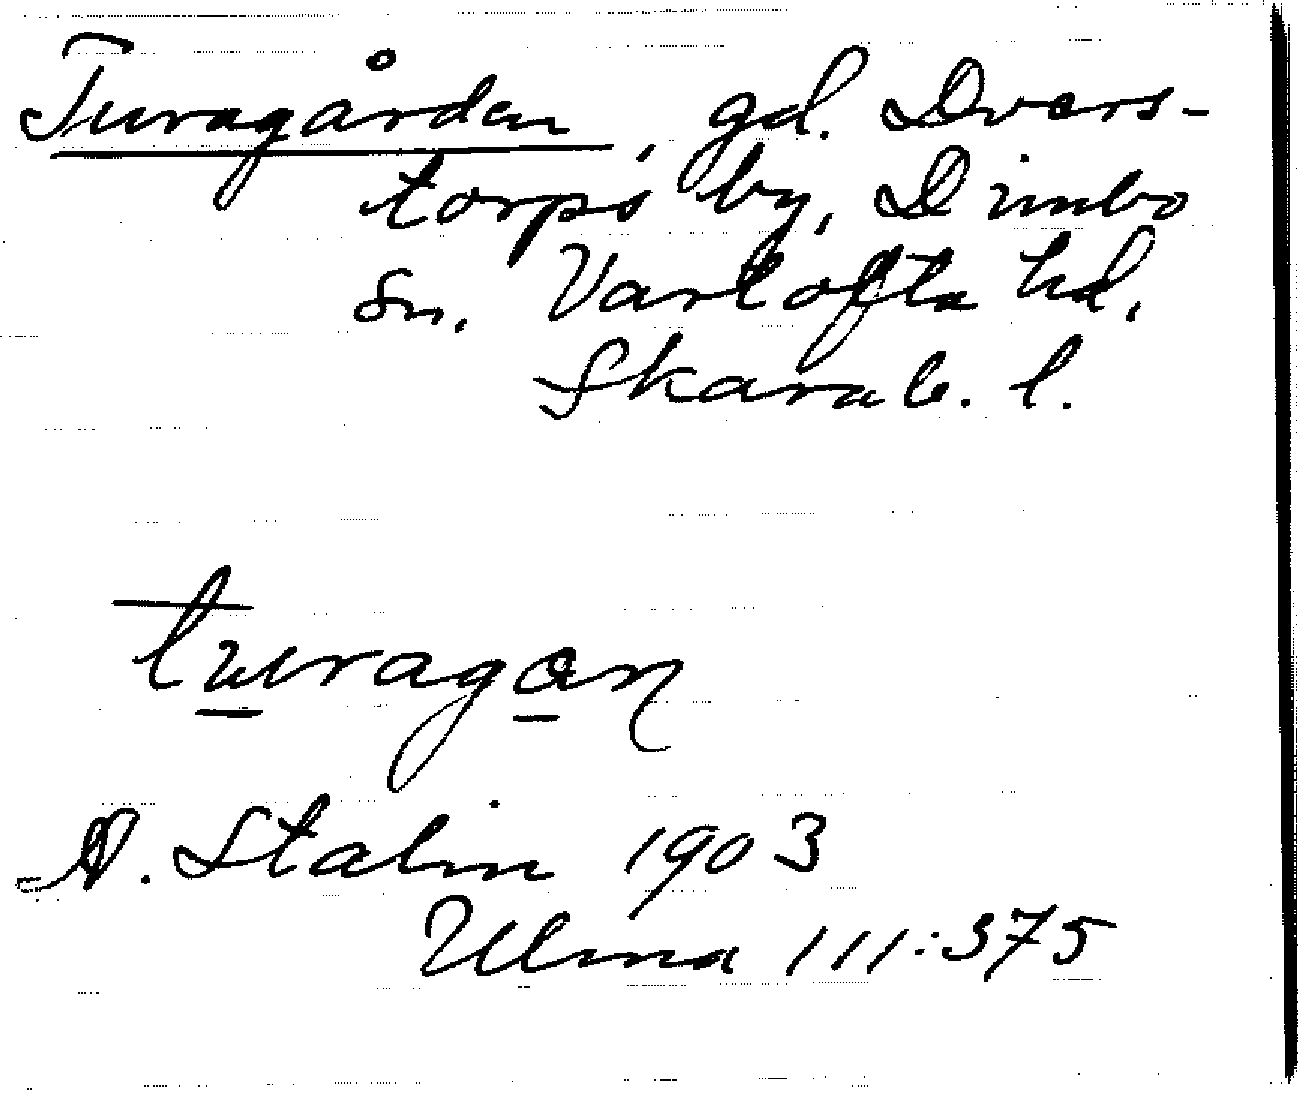 Turagården, gd. Dvers-
torps by, Dimbo
sn. Vartofta hd.
Skarab. l.
turagan
A. Stalin 1903
Ulma 111:375